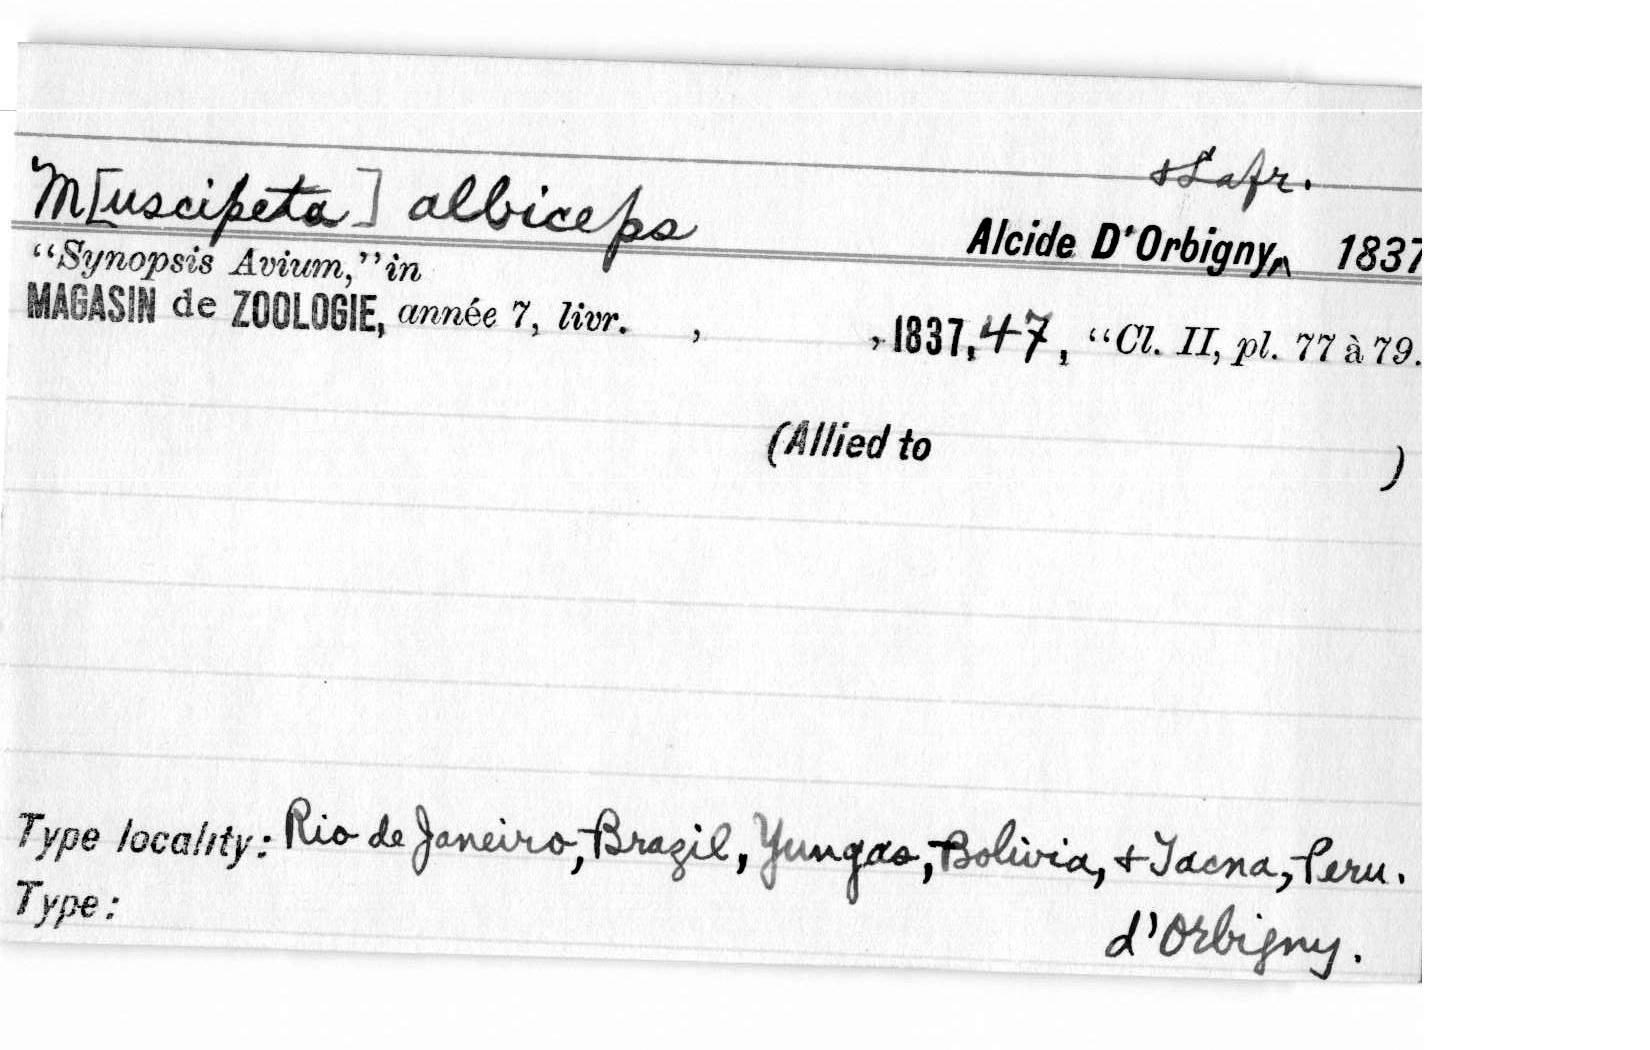 & Lafr.
M[uscipeta] albiceps Alcide D'Orbigny,^ 1837
“Synopsis Avium,” in
MAGASIN de ZOOLOGIE, année 7, livr. , , 1837, 47, “Cl. II, pl. 77 à 79.
(Allied to )
Type locality: Rio de Janeiro, Brazil, Yungas, Bolivia, & Tacna, Peru.
Type: d'Orbigny.